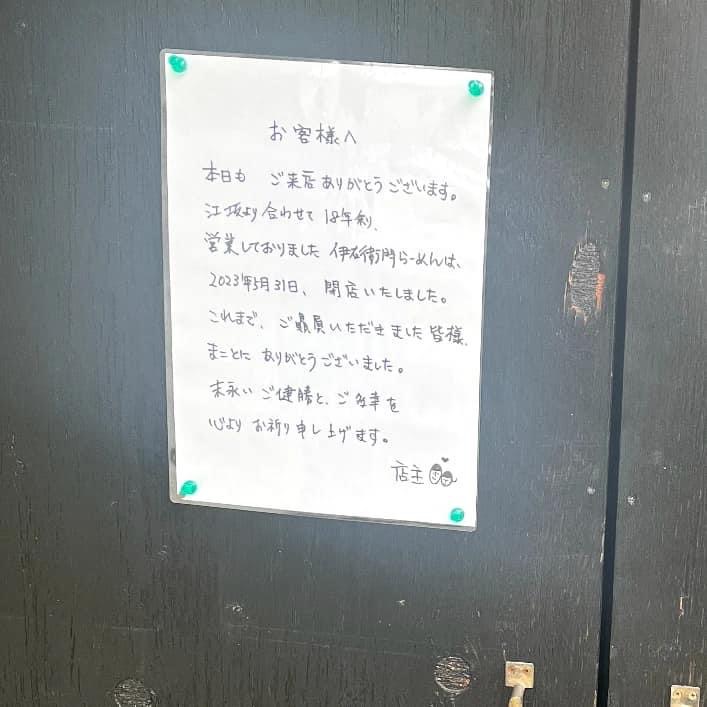 お客様へ
本日も ご来店ありがとうございます。
江坂より合わせて 18年余り、
営業しておりました 伊右衛門らーめんは、
2023年5月31日、閉店いたしました。
これまで、ご贔屓いただきました皆様、
まことに ありがとうございました。
末永い ご健勝と、ご多幸を
心より お祈り申し上げます。
店主